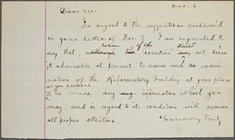 Dear Sir:
In regard to the suggestions contained
in your letter of Nov. 2 I am requested to
say that, of the
it advisable at present to cause such an exam-
ination of the Reformatory building at your place
to be made, any information which you
may send in regard to it condition will receive
all proper attention.
Yours very truly